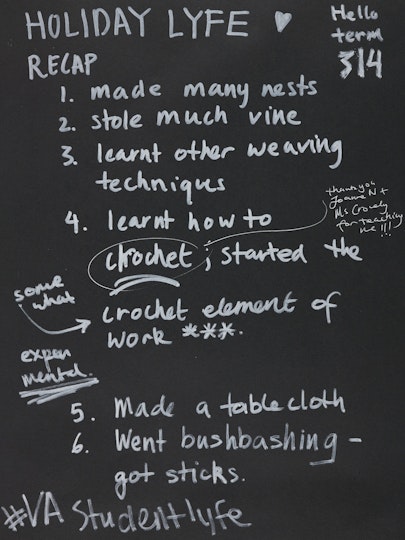 HOLIDAY LYFE ♥
Hello
term
3/4
RECAP
1. made many nests
2. stole much vine
3. learnt other weaving
techniques
4. learnt how to
crochet ; started the
thank you
Joanne N +
Ms Crovely
for teaching
me !!!
some
what
crochet element of
work ***.
experi
mental.
5. Made a tablecloth
6. Went bushbashing –
got sticks.
#VA Studentlyfe